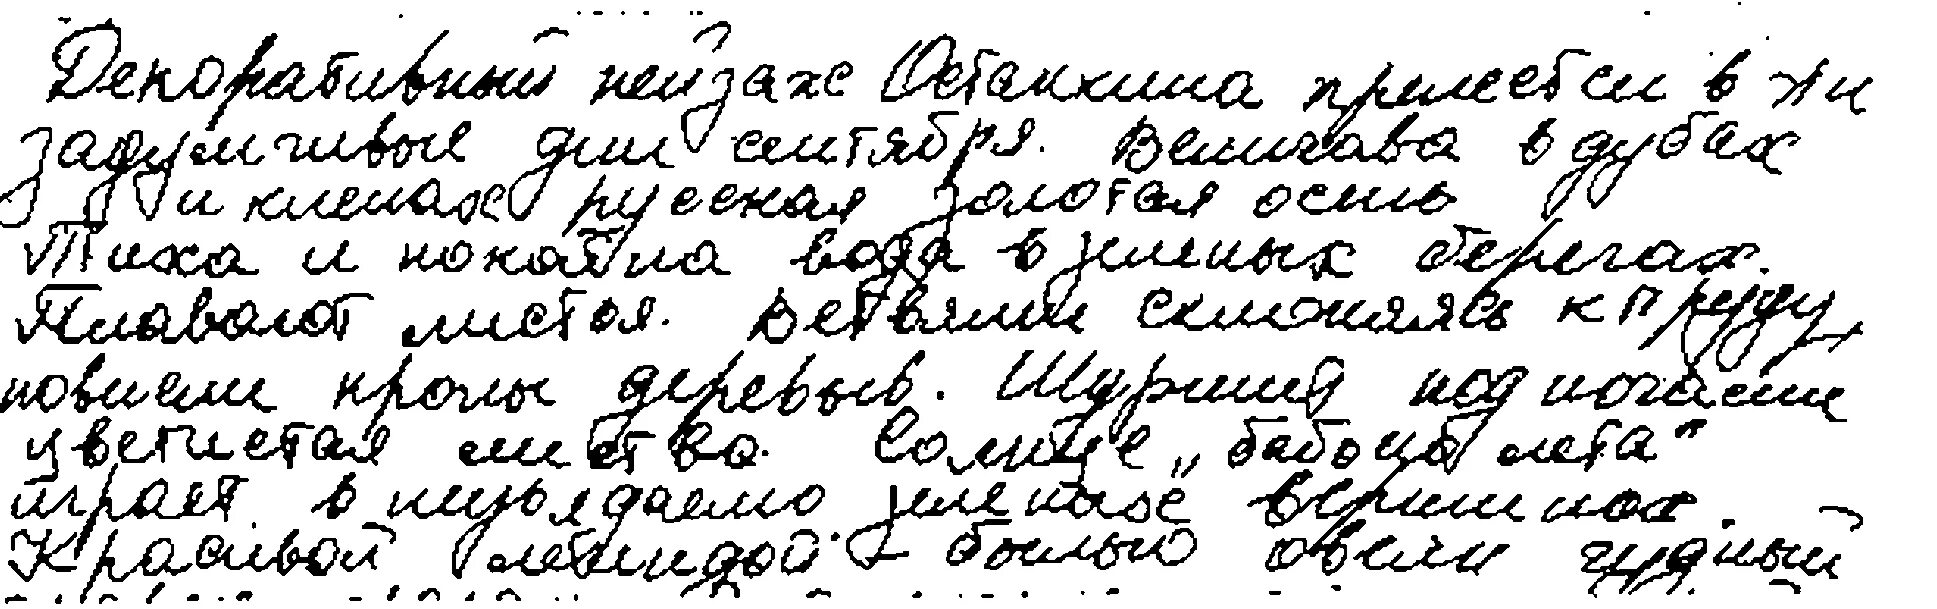 Декоративный пейзаж Останкина прелестен в эти
задумчивые дни сентября. Величава в дубах
и кленах русская золотая осень
Тиха и покойна вода в зеленых берегах.
Плавают листья. Ветвями склоняясь к пруду,
повисли кроны деревьев. Шуршит под ногами
цветистая листва. Солнце „бабьего лета"
играет в неувядаемо зеленых вершинах.
Красивой легендой - былью овеян чудный